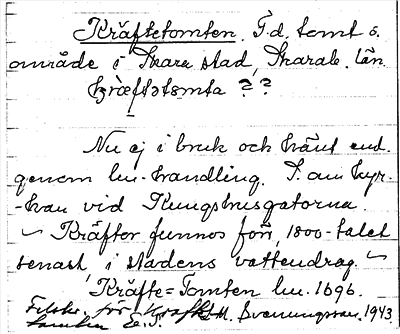 Kräftetomten. F.d. tomt o.
område i Skara stad, Skarab. län.
kräftətɷmta ??
Nu ej i bruk och känt end.
genom lm-handling. S. om kyr-
-kan vid Kungshusgatorna.
~ Kräftor funnos förr, 1800-talet
senast, i stadens vattendrag. ~
Kräfte=Tomten lm. 1696.
för M. Svanungsson. 1943.
E.S.